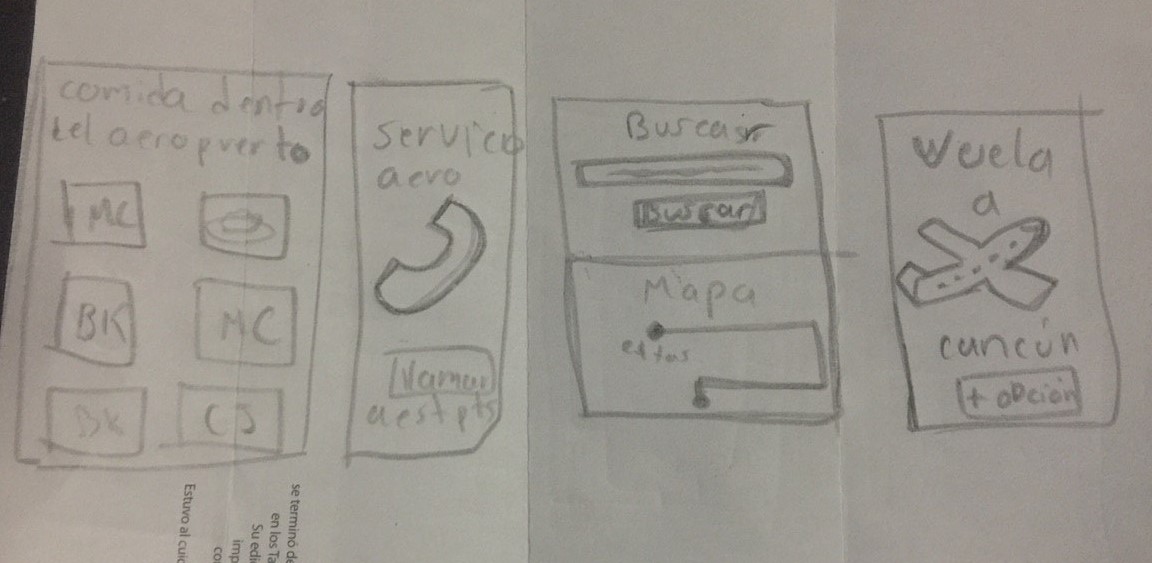 comida dentro
del aeropuerto
MC
BK
MC
BK
CJ
servicio
aero
llamar
Buscar
Buscar
Mapa
estas
Vuela
a
cancún
+ opción
se terminó de
en los Ta
Su edi
imp
co
Estuvo al cuid